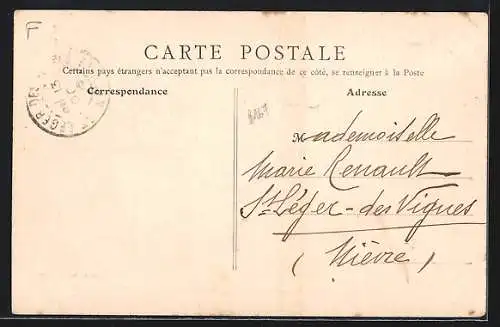 F
CARTE POSTALE
Certains pays étrangers n'acceptant pas la correspondance de ce côté, se renseigner à la Poste
Correspondance
Adresse
Mademoiselle
Marie Renault
St. Léger-des Vignes
(Nièvre)